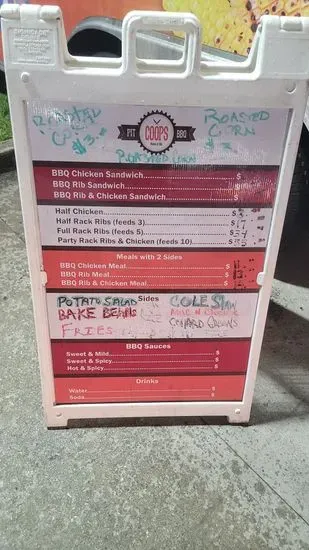 ROASTED
CORN
$3.00
PIT
COOPS
BBQ
ROASTED
CORN
$3
ROASTED CORN
BBQ Chicken Sandwich $
BBQ Rib Sandwich $
BBQ Rib & Chicken Sandwich $
Half Chicken $
Half Rack Ribs (feeds 3) $
Full Rack Ribs (feeds 5) $
Party Rack Ribs & Chicken (feeds 10) $
Meals with 2 Sides
BBQ Chicken Meal $
BBQ Rib Meal $
BBQ Rib & Chicken Meal $
Sides
POTATO SALAD
COLE SLAW
BAKE BEANS
MAC N CHEESE
FRIES
COLLARD GREENS
BBQ Sauces
Sweet & Mild $
Sweet & Spicy $
Hot & Spicy $
Drinks
Water $
Soda $